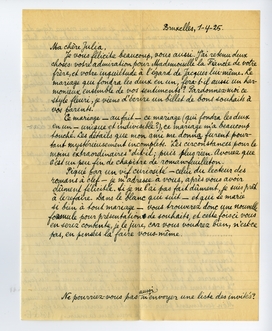 Bruxelles, 1-4-25.
Ma chère Julia,
Je vous félicite beaucoup, vous aussi. J'ai retenu deux
choses : votre admiration pour Mademoiselle la Fiancée de votre
frère, et votre inquiétude à l'égard de Jacques lui-même. Le
mariage qui fondra les deux en un, fera-t-il aussi un har-
monieux ensemble de vos sentiments? Pardonnez-moi ce
style fleuri, je viens d'écrire un billet de bons souhaits à
vos parents.
Ce mariage - au fait - ce mariage (qui fondra les deux
en un - unique et indivisible), ce mariage m'a beaucoup
touché. Les détails que mon ami me donna, furent pour-
tant mystérieusement incomplets. Les circonstances pour le
moins extraordinaires" dit-il, puis plus rien. Avouez que
c'est un peu fin de chapitre de roman-feuilleton.
Piqué par un vif curiosité - celui du lecteur des
romans à clef - je m'adresse à vous, après vous avoir
dûment félicitée. Si je ne l'ai pas fait dûment, je suis prêt
à le refaire. Dans le blanc qui suit - et que je mar-
re bien, à tout mariage - vous trouverez donc une nouvelle
formule pour présentations de souhaits, et cette fois-ci vous
en serez contente, je le jure, car vous voudrez bien, n'est-ce
pas, en pensées la faire vous-même.
Ne pourriez-vous pas aussi m'envoyer une liste des invités?